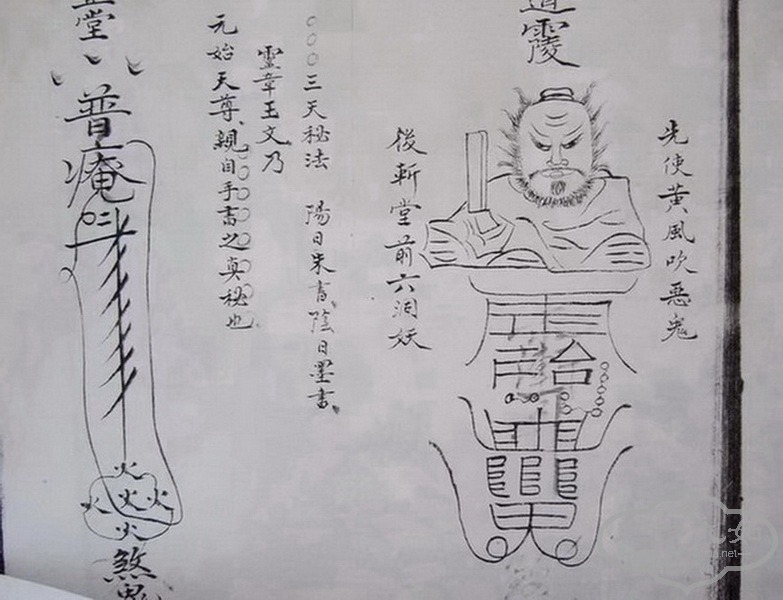 先使黃風吹惡鬼
道
後斬堂前六洞妖
○○○三天秘法 陽日朱書陰日墨書
靈章玉文乃
元始天尊親自手書之真秘也
堂
普庵
火
火火火
火
煞鬼